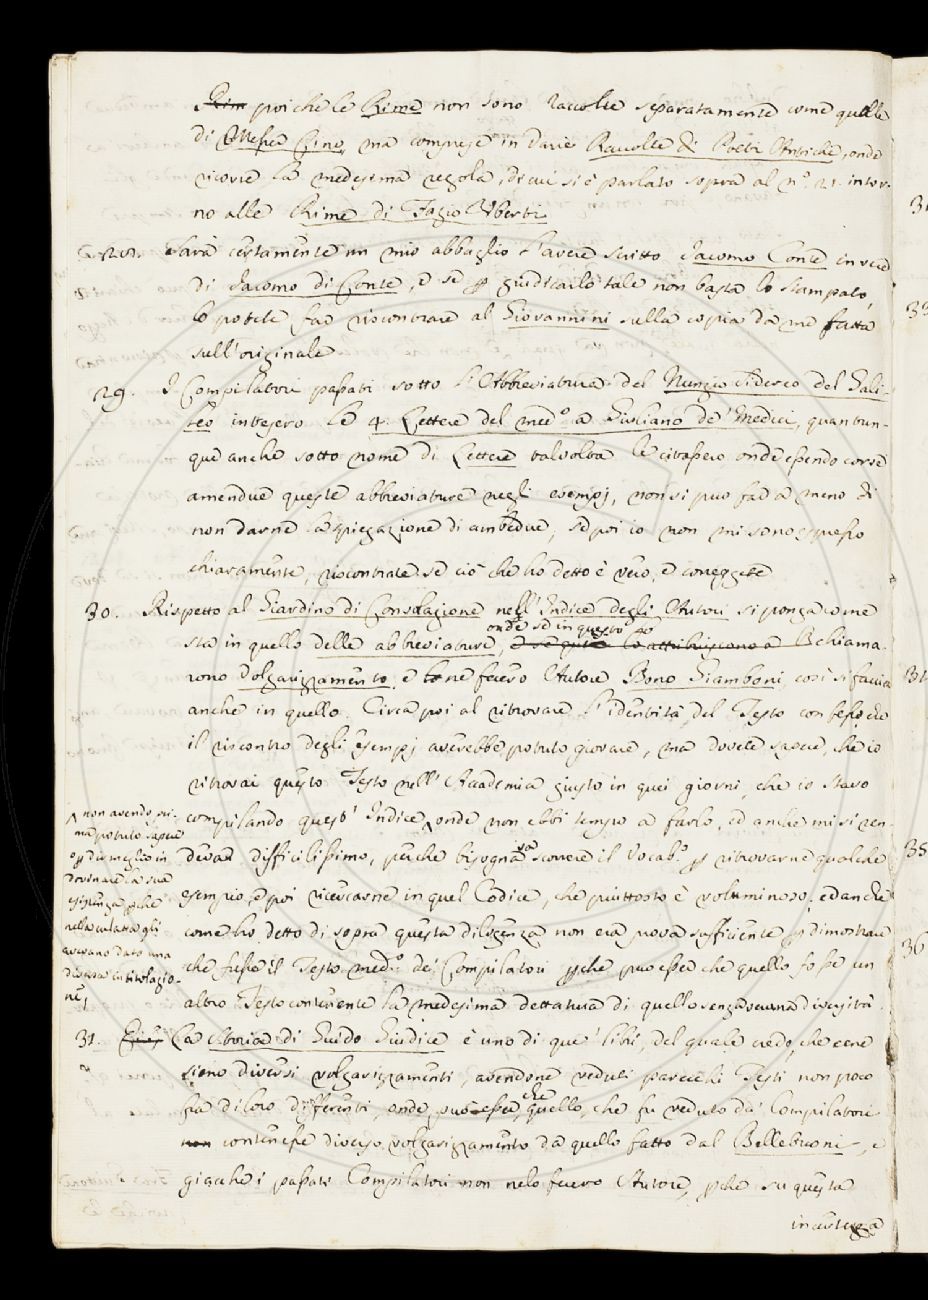 poichè le Rime non sono raccolte separatamente come quelle
di Messer Cino, ma comprese in varie Raccolte di Poeti Antichi, onde
ricorre la medesima regola, di cui si è parlato sopra al n.° 21. intor-
no alle Rime di Fazio Uberti.
28. Sarà certamente un mio abbaglio l'avere scritto Jacomo Conte in vece
di Jacomo di Conte, e se p giudicarlo tale non basta lo stampato,
lo potete far riscontrare al Giovannini sulla copia da me fatta
sull'originale
29. I Compilatori passati sotto l'Abbreviatura del Nunzio Sidereo del Gali-
leo intesero le 4. Lettere del med.° a Giuliano de' Medici, quantun-
que anche sotto nome di Lettere talvolta le citassero onde essendo corse
amendue queste abbreviature negli esempj, non si può far a meno di
non darne la spiegazione di ambedue, se poi io non mi sono espresso
chiaramente, riscontrate se ciò che ho detto è vero, e correggete
30. Rispetto al Giardino di Consolazione nell'Indice degli Autori si ponga come
onde se in questo
sta in quello delle abbreviature, lo chiama-
rono Volgarizzamento, e ne fecero Autore Bono Giamboni, così si faccia
anche in quello. Circa poi al ritrovare l'identità del Testo confesso che
il riscontro degli esempj averebbe potuto giovare, ma dovete sapere, che io
ritrovai questo Testo nell'Accademia giusto in quei giorni, che io stavo
compilando quest'Indice, onde non ebbi tempo a farlo, ed anche mi si ren-
non avendo pri-
ma potuto sapere
nè meglio in
dovinare la sua
esistenza pche
nella culatta gli
avevano dato una
diversa intitolazio-
ne
deva difficilissimo, perchè bisognava scorrere il Vocab.° p ritrovarne qualche
esempio, e poi ricercarne in quel Codice, che piuttosto è voluminoso, ed anche
come ho detto di sopra questa diligenza non era prova sufficiente p dimostrare
che fusse il Testo med.° de' Compilatori pche può esser che quello fosse un
altro Testo contenente la medesima dettatura di quello senza veruna diversità.
31. La Storia di Guido Giudice è uno di que' libri, del quale credo, che cene
sieno diversi volgarizzamenti, avendone veduti parecchi Testi non poco
fra di loro differenti onde può essere che quello, che fu veduto da' Compilatori
non contenesse diverso volgarizzamento da quello fatto dal Bellebuoni, e
giacchè i passati Compilatori non nelo fecero Autore, pche su questa
incertezza